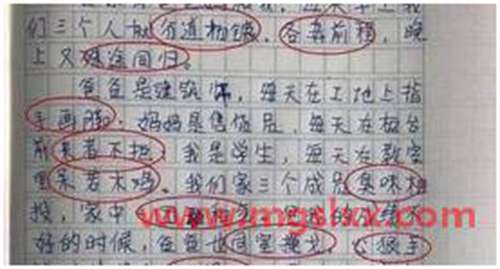 们三个人就分道扬镳、各奔前程，晚
上又殊途同归。
爸爸是建筑师，每天在工地上指
手画脚。妈妈是售货员，每天在柜台
前来者不拒。我是学生，每天在教室
里呆若木鸡。我们家三个成员臭味相
投，家中
www.mgslxx.com
好的时候，爸爸也同室操戈、心狠手